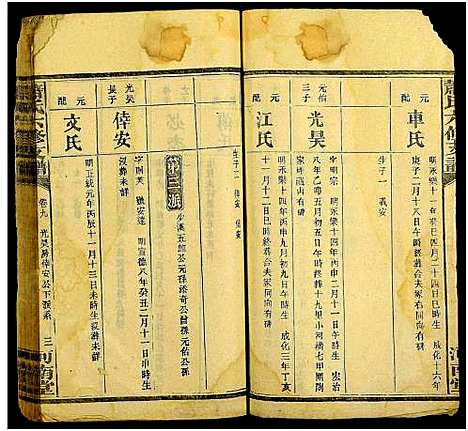 元配
車氏
明永樂十一年癸巳四月二十四日時生 成化十六年
庚子二月十八日午時終葬合夫冢有碑
生子一 義安
元佑三子
光昊
字明宗 明永樂十四年丙申二月十一日午時生 弘治
八年乙卯五月初五日午時終葬十九里小河橋七甲
冢坪酉山有碑
元配
江氏
明永樂十四年丙申九月初九日午時生 成化三年丁亥
十一月十二日戌時終葬合夫冢同向有碑
生子二 倖安 倖安
第三派
少溪五郎公元孫 公曾孫元佑公孫
光昊長子
倖安
字
歿葬未詳
明宣德八年癸丑二月十一日申時生
元配
文氏
明正統元年丙辰十一月十三日未時生歿葬未詳
氏六修支譜
卷九
光昊房倖安公下派系
三
河南堂